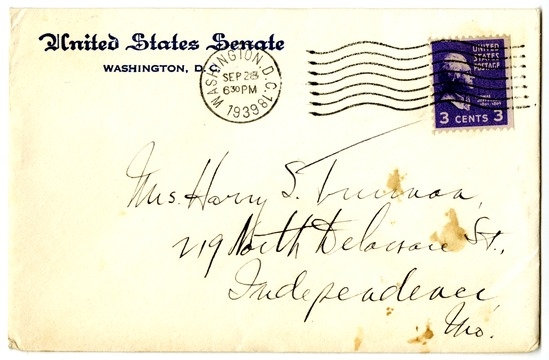 United States Senate
WASHINGTON, D.C.
WASHINGTON, D.C. 18
SEP 28
6 30 PM
1939
UNITED
STATES
POSTAGE
3 CENTS 3
Mrs. Harry S. Truman,
219 North Delaware St.,
Independence
Mo.